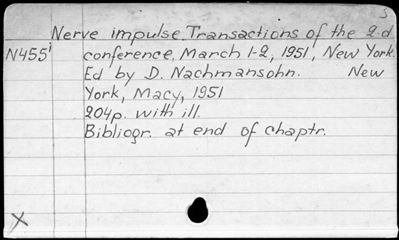 3
Nerve impulse. Transactions of the 2d
N455i conference, March 1-2, 1951, New York.
Ed by D. Nachmansohn. New
York, Macy, 1951
204p. with ill.
Bibliogr. at end of chaptr.
X